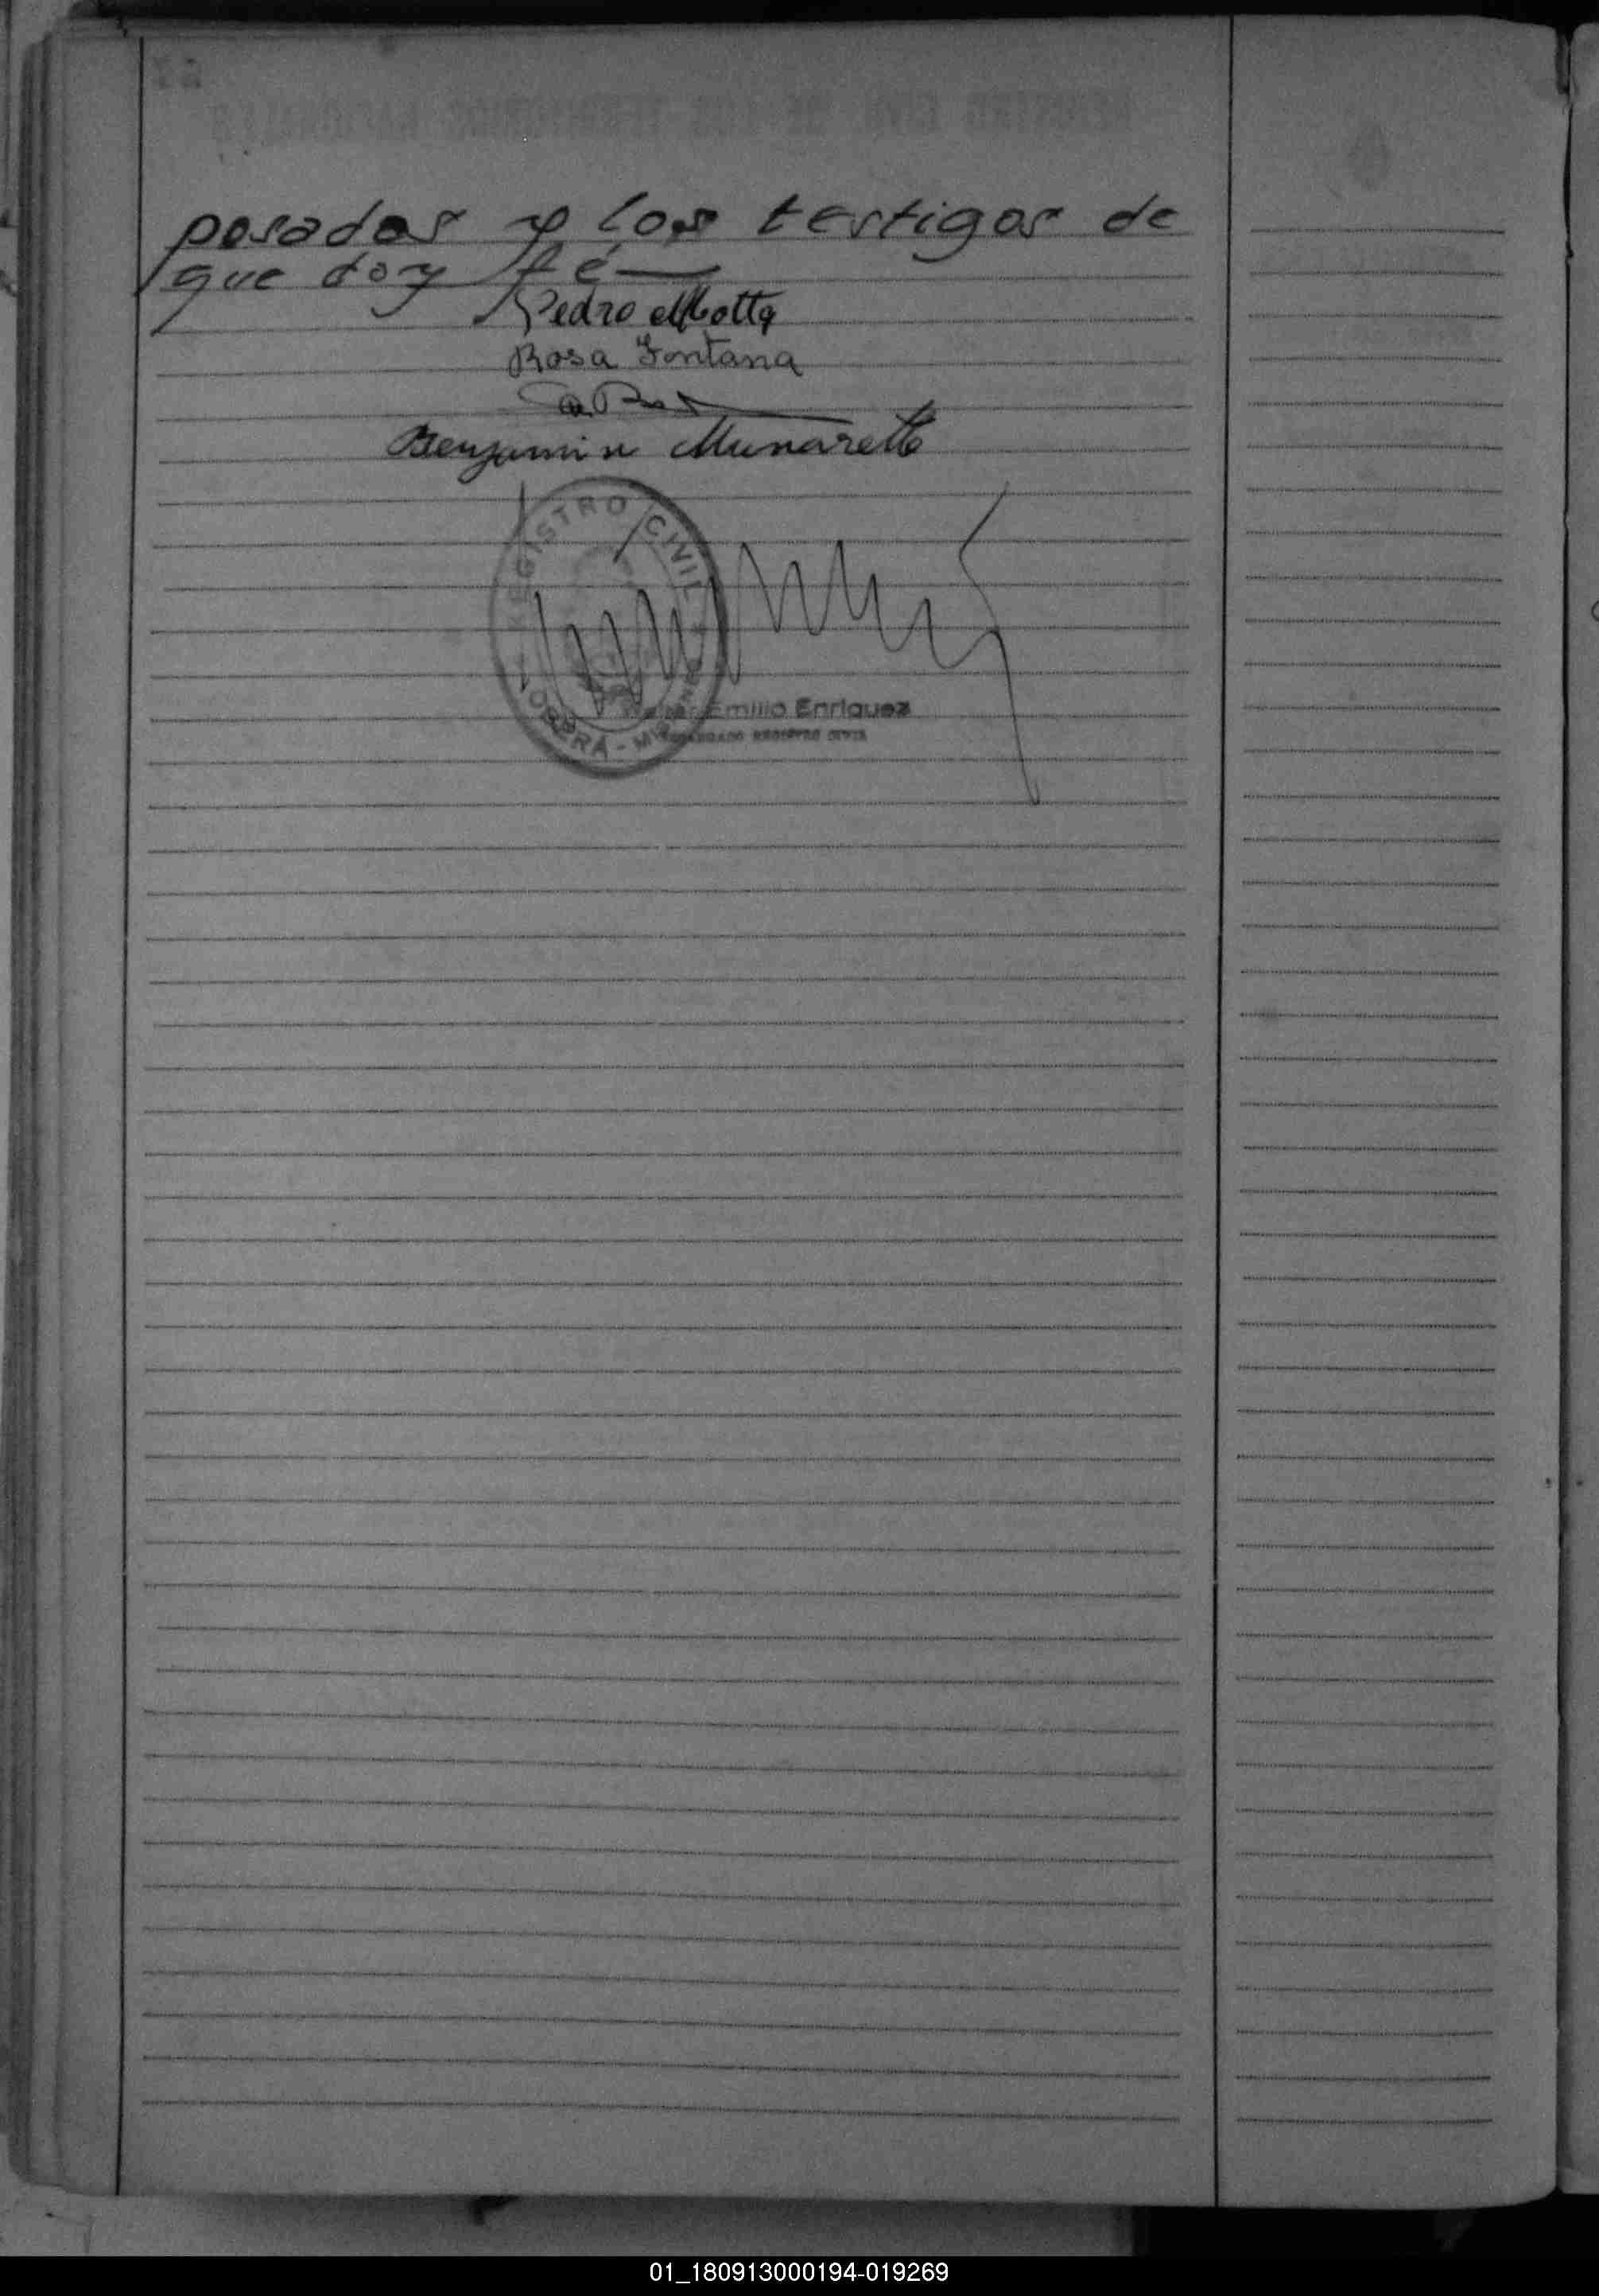 posados y los testigos de
que doy fé
Pedro Motta
Rosa Fontana
Benjamin Munaretto
REGISTRO CIVIL
OBERÁ - MISIONES
Emilio Enriquez
ENCARGADO REGISTRO CIVIL
01_180913000194-019269